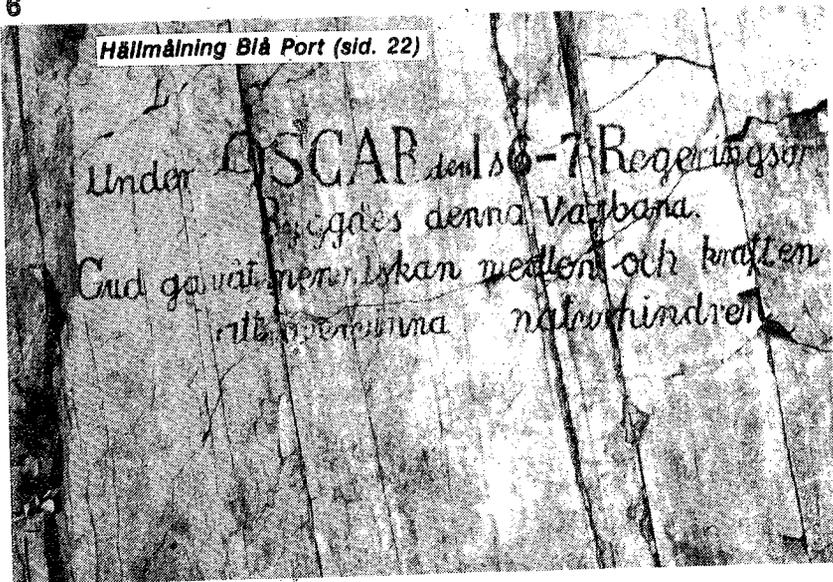 6
Hällmålning Blå Port (sid. 22)
Under OSCAR den I s 6-7 Regeringsår
Byggdes denna Vägbana.
Gud gav åt menniskan medlen och kraften
att öfvervinna naturhindren